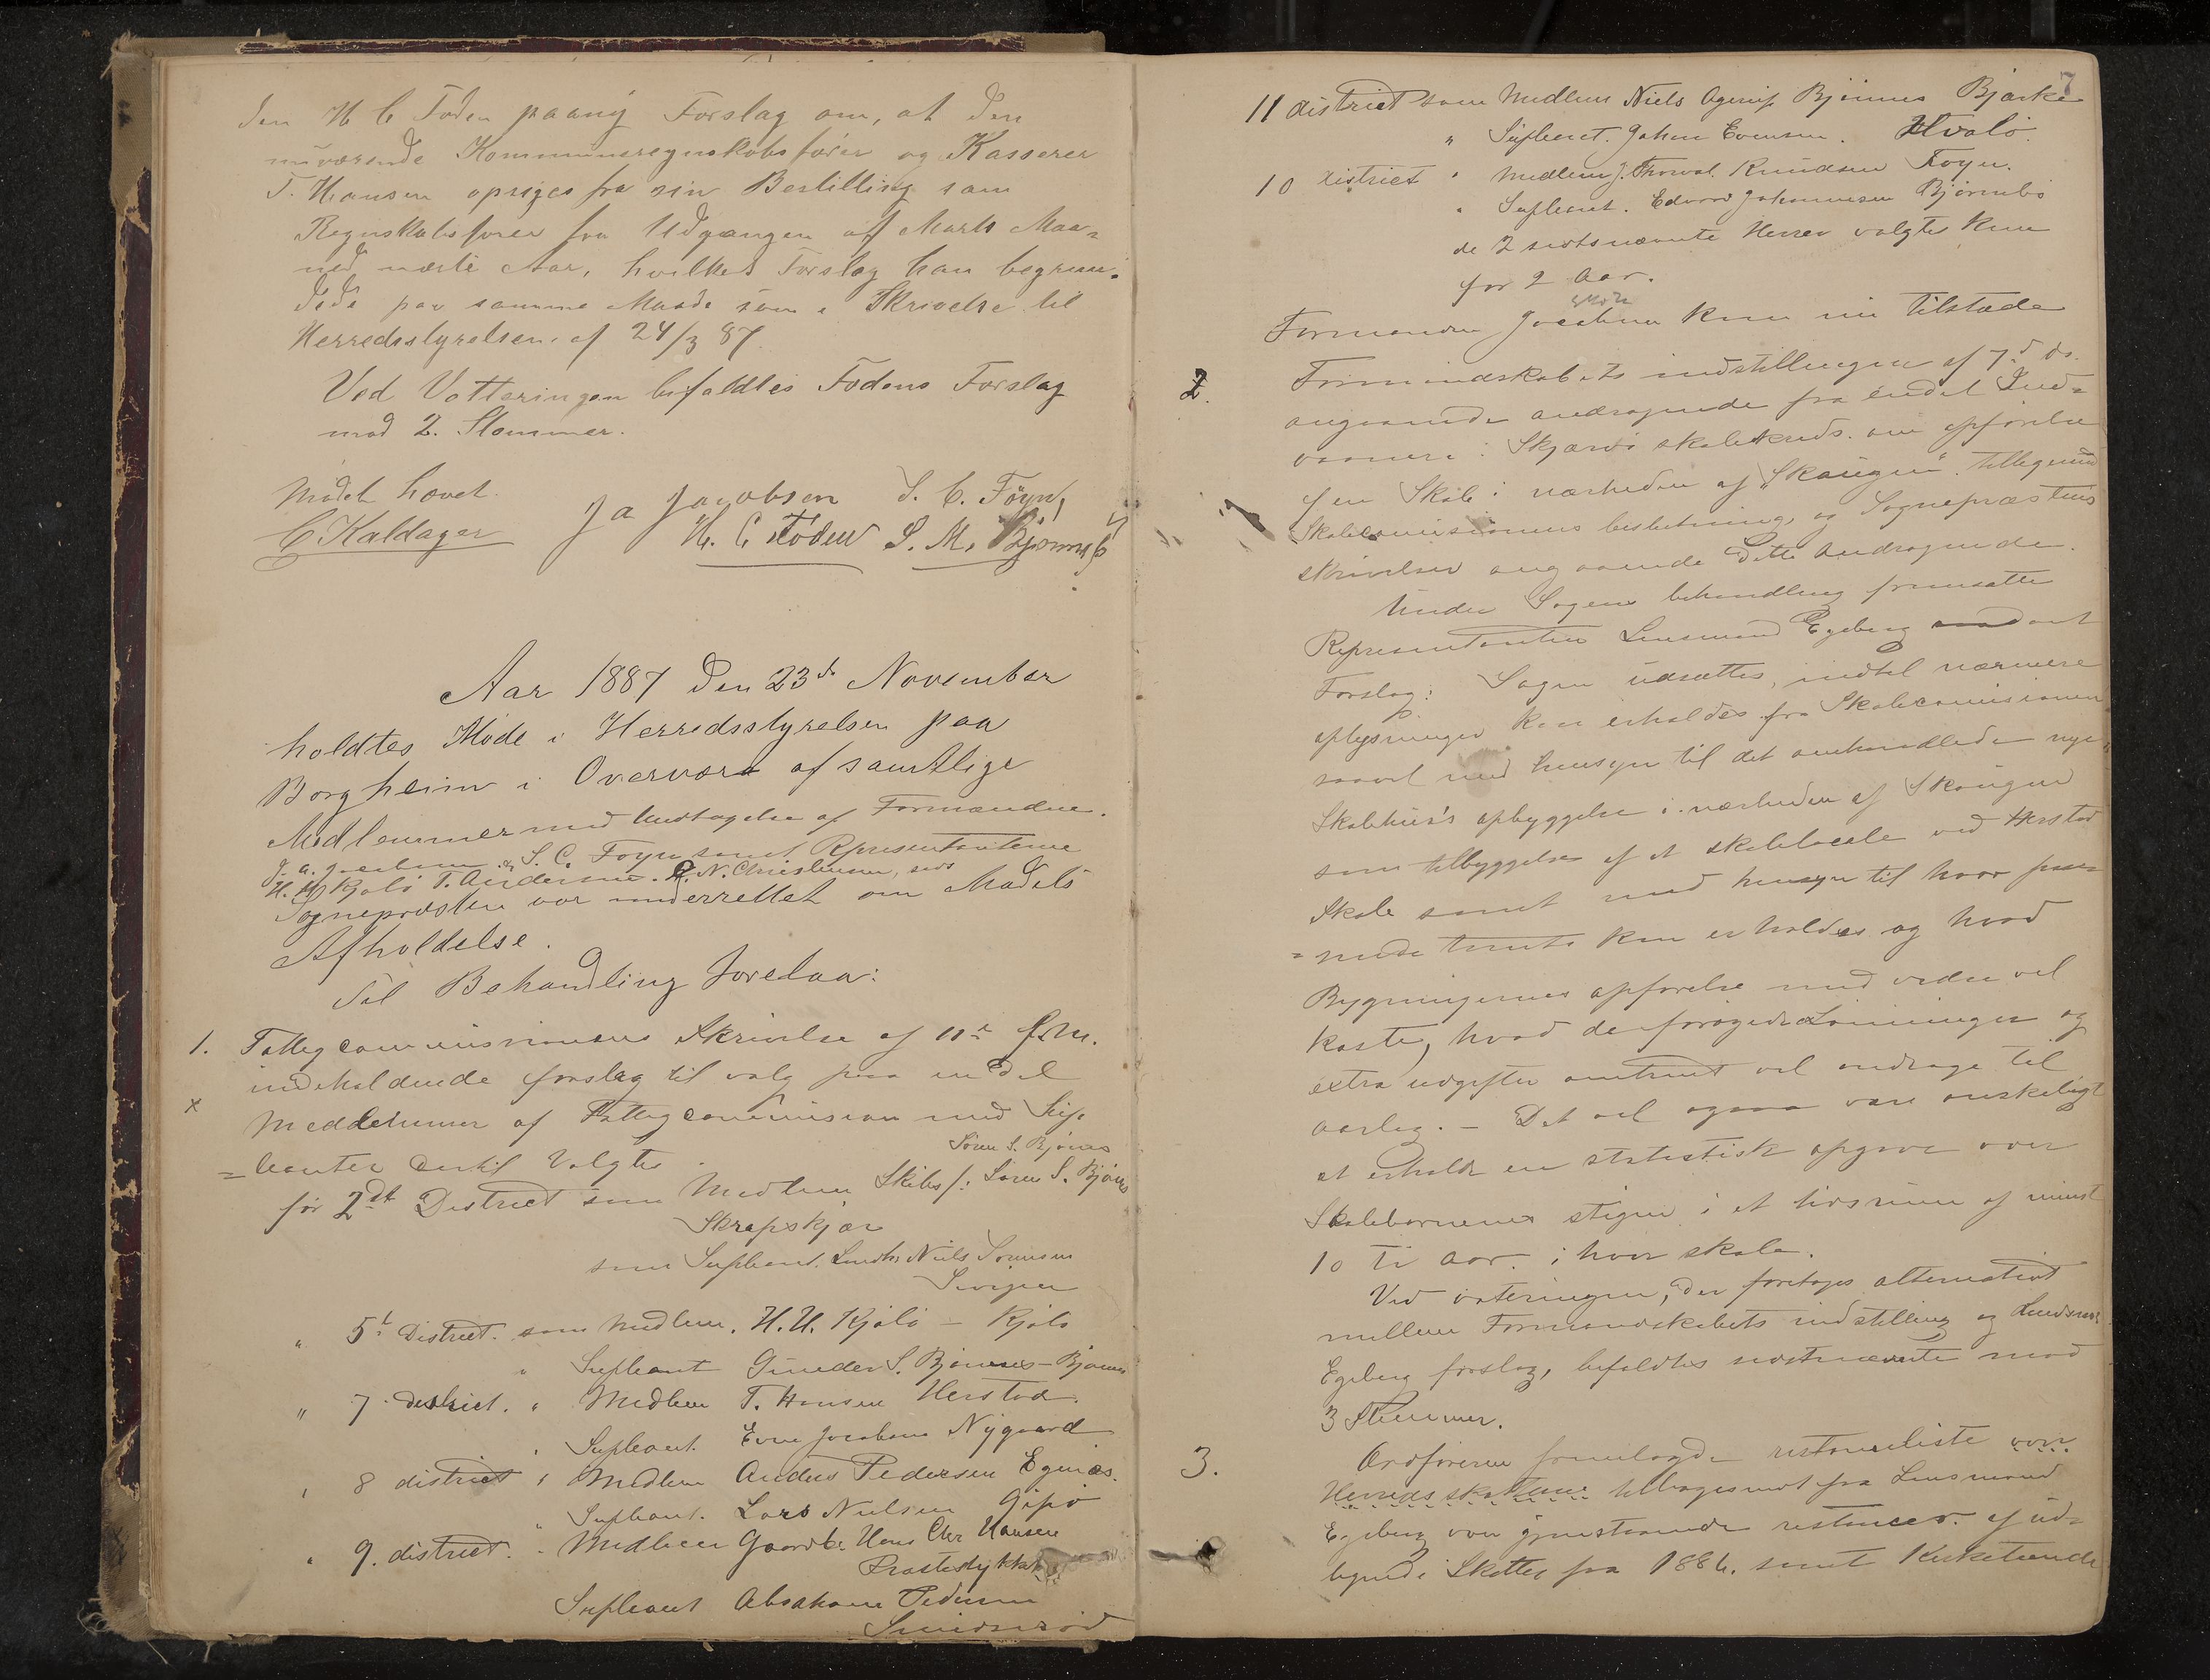 den H C Foden paany Forslag om, at den
nuværende Kommuneregnskabsfører og Kasserer
T. Hansen opsiges fra sin Bestilling som
Regnskabsfører fra Udgangen af Marts Maa=
ned næste Aar, hvilket Forslag han begrun=
dede paa samme Maade som i Skrivelse til
Herredsstyrelsen af 24/3 87.
Ved Votteringen bifaldtes Fodens Forslag
mod 2. Stemmer.
Mødet hævet.
C Kaldager Ja Jacobsen S. C. Föyn,
H. C. Foden S. M. Bjønnes
Aar 1887 den 23de November
holdtes Møde i Herredsstyrelsen paa
Borgheim i Overvær af samtlige
Medlemmer med Undtagelse af Formændene.
J. A. Jacobsen & S. C. Foyn samt Representanterne
H. Kjølø T. Andersen. N. Christensen,
Sognepresten var underrettet om Mødets
Afholdelse.
Til Behandling forelaa:
1. Fattigcommissionens Skrivelse af 11te
indeholdende forslag til valg paa en del
x
Meddlemmer af Fattigcommission med Sup=
=leanter dertil Valgtes
Søren S. Bjønnes
for 2det District som Medlem Skibsf: Søren S. Bjønnes
Skrapskjær
som Supleant. Niels Sørensen
" 5t District. som Medlem. H. H. Kjølø – Kjølø
" Supleant Gunder S. Bjønnes – Bjønnes
" 7. district. " Medlem T. Hansen Herstad.
" Supleant. Even Jacobsen Nygaard
" 8 district " Medlem Anders Pedersen Egenæs.
" Supleant. Lars Nielsen Gipø
" 9. district. " Medlem Gaardbr. Hans Chr Hansen
Prestestykket
Supleant Absaham Pedersen
7
11 district som Medlem Niels Bjønnes Bjærke
" Supleant. Johan Evensen. Hvalø.
10 district " Medlem J. Thorval. Knudsen Foyn.
" Supleant. Edvard Johannesen Bjørnebo
de 2 sidstnævnte Herrer valgtes kun
for 2 Aar.
Formanden Jacobsen kom nu tilstæde
2. Formandskabets indstillingen af 7de ds.
angaaende andragende fra endel Ind=
vaanere i skolekreds. om opførelse
af en Skole i nærheden af "Skougen". tilligemed
Skolecomisionens beslutning, og Sogneprestens
skrivelser angaaende dette andragende.
Under Sagens behandling fremsatte
Representanten Lensmand Egeberg
Forslag: Sagen udsættes, indtil nærmere
oplysninger kan erholdes fra Skolecomisionen
saavel med hensyn til det omhandlede nye
Skolehus's opbyggelse i nærheden af Skougen
som tilbyggelse af et skolelocale ved Herstad
Skole samt med hensyn til hvor pas=
=sende tomte kan erholdes og hvad
Bygningernes opførelse med videre vil
koste, hvad de forøgede Lønninger og
extra udgifter omtrent vil andrage til
aarlig. – Det vil ogsaa være ønskeligt
at erholde en statistisk opgave over
Skolebørnenes stigen i et tidsrum af mindst
10 ti aar. i hver skole.
Ved voteringen, der foretoges alternativt
mellem Formandskabets indstilling og Lensmand
Egeberg forslag, bifaldtes sidstnævnte mod
3 Stemmer.
3. Ordføreren fremlagde restanceliste over
Herredsskattene tilbagesendt fra Lensmand
Egeberg over gjenstaaende restancer. af ud=
lignede Skatter fra 1886. samt Kirketiende